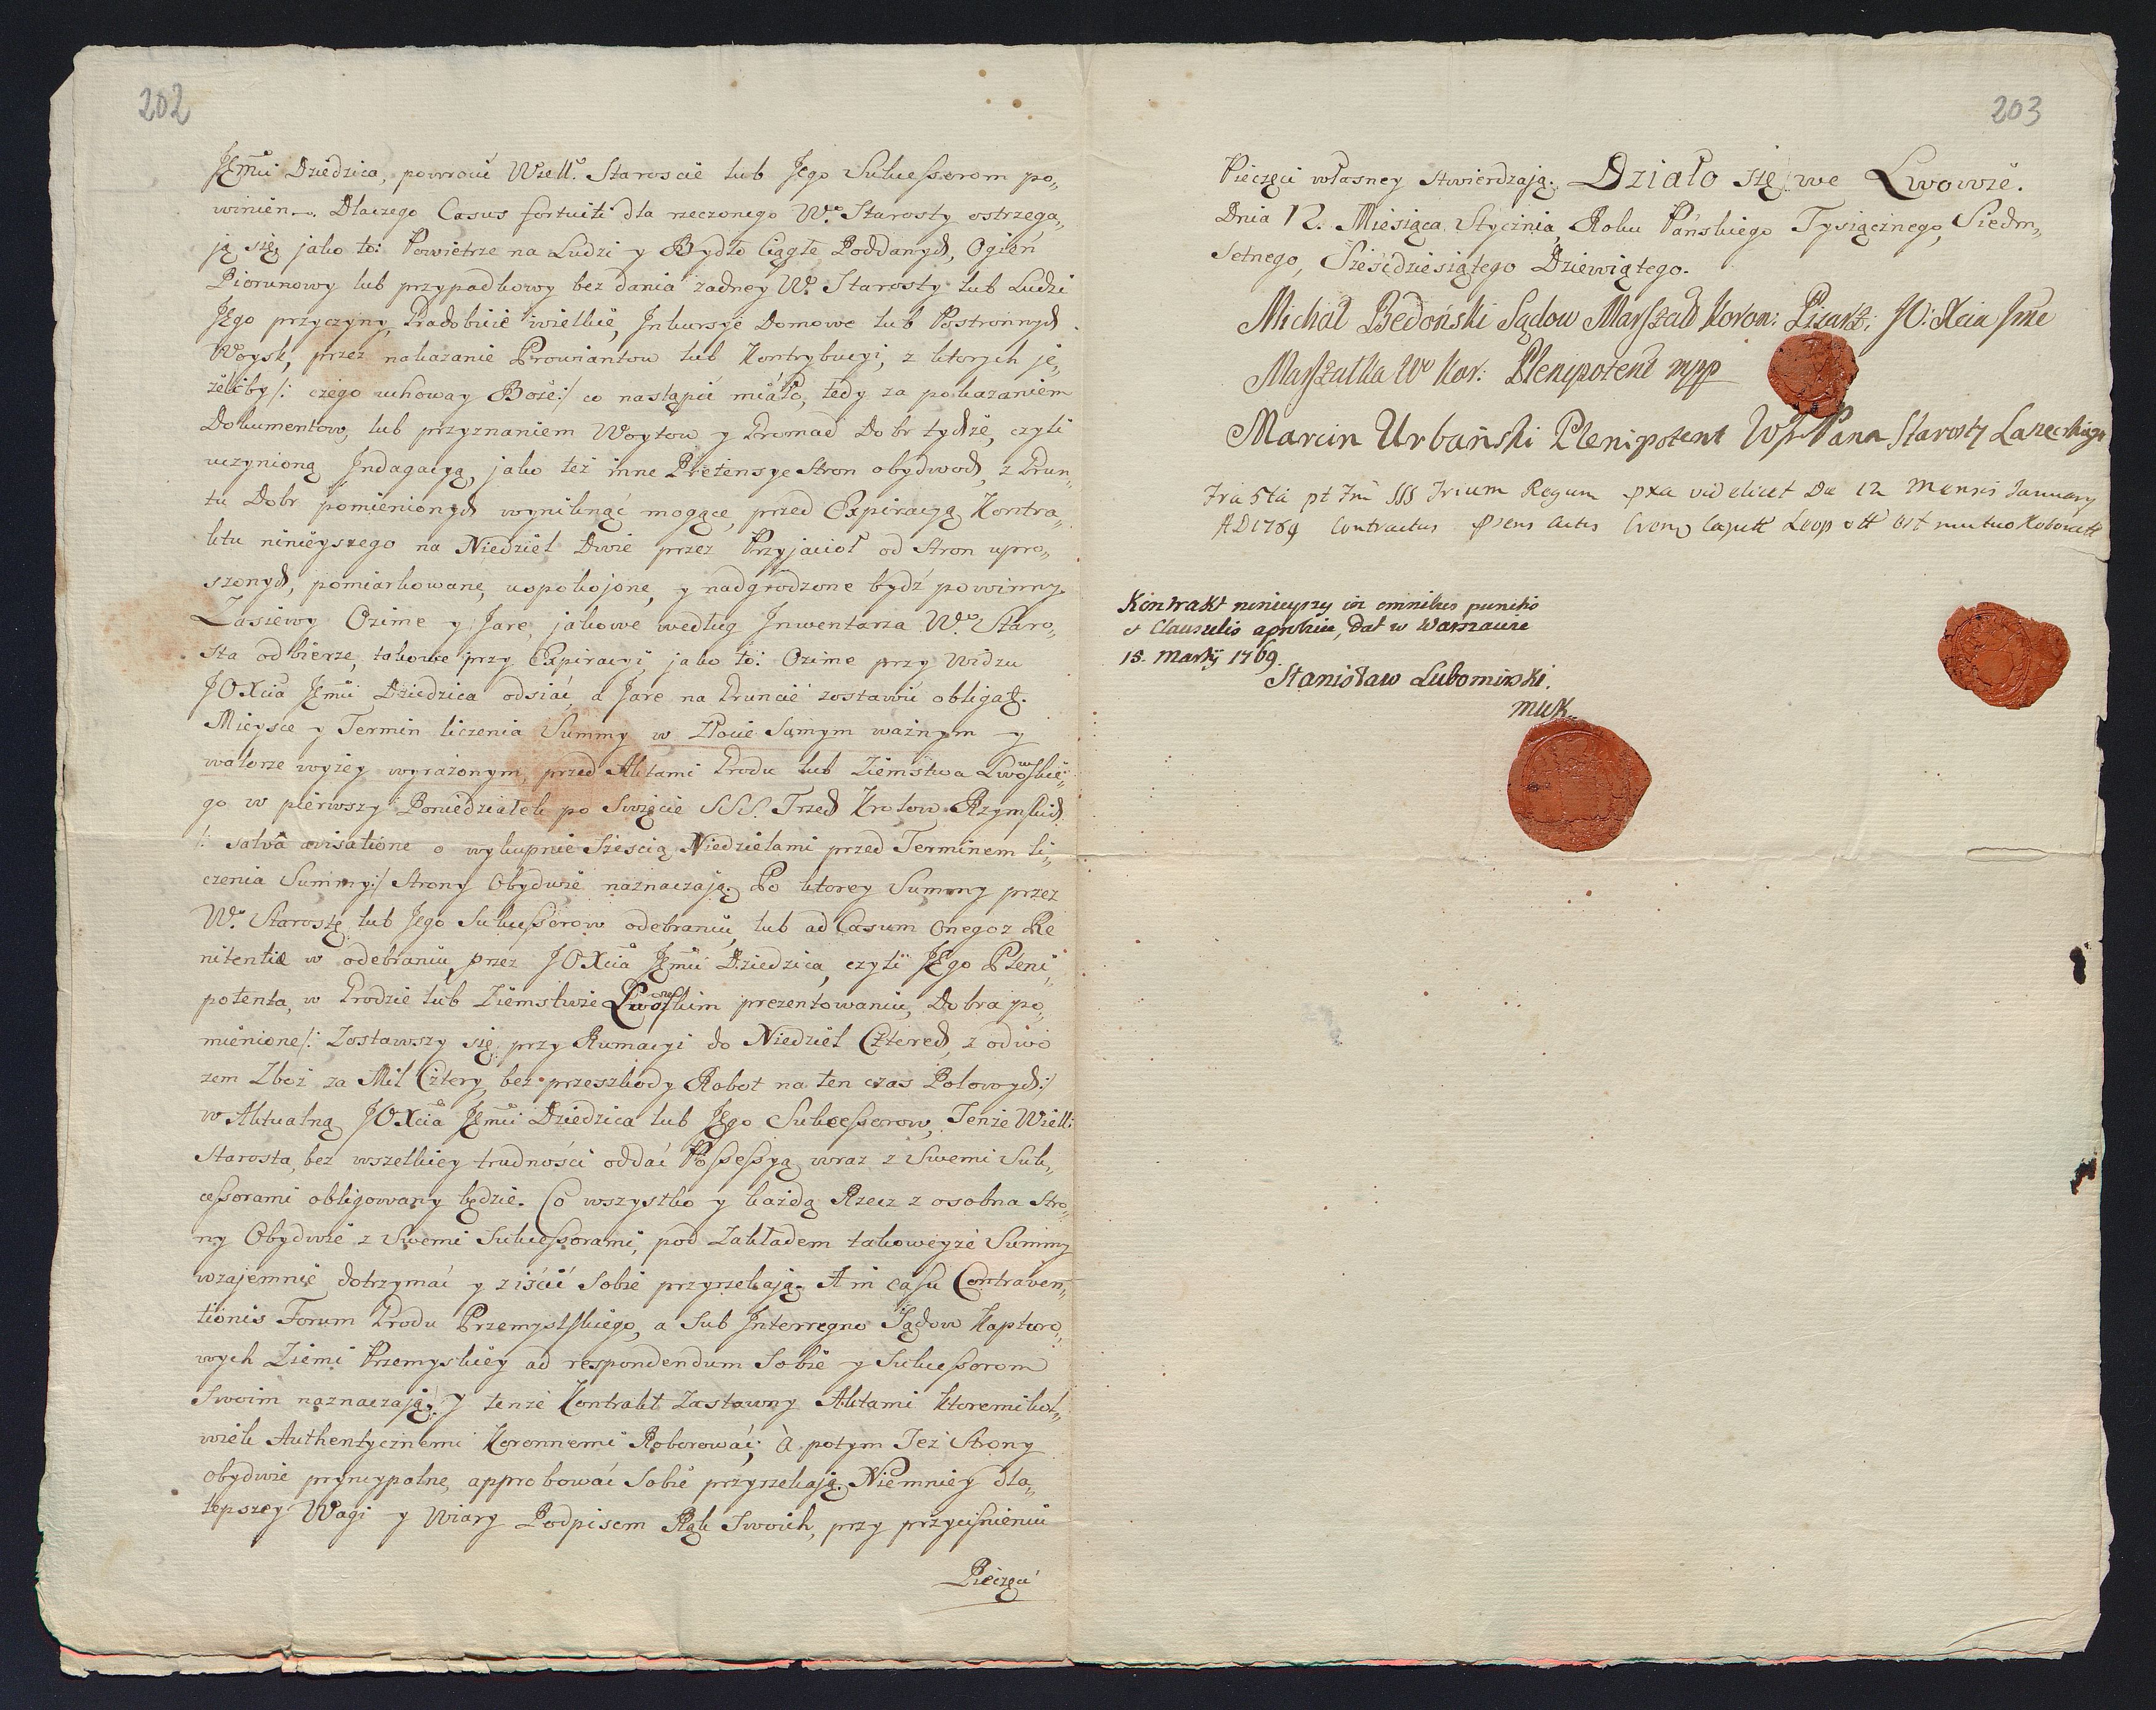 202
JEmci Dziedzica, powrocić Wiell. Staroscie lub Jego Sukcessorom po„
winien. Dlaczego Casus fortuiti dla rzeczonego Wo. Starosty ostrzega„
ją się, jako to: Powietrze na Ludzi y Bydło Ciągłe Poddanych, Ogień
Piorunowy lub przypadkowy bez dania żadney W. Starosty lub Ludzi
JEgo przyczyny, Gradobicie wielkie, Inkursye Domowe lub Postronnych
Woysk, przez nakazanie Prowiantow lub Kontrybucyi, z ktorych je„
żeliby /: czego uchoway Boże :/ co nastąpić miało, tedy za pokazaniem
Dokumentow, lub przyznaniem Woytow y Gromad Dobr tychże, czyli
uczynioną Indagacyą, jako też inne Pretensye Stron obydwoch, z Grun„
tu Dobr pomienionych wyniknąć mogące, przed Expiracyą Kontra„
ktu ninieyszego na Niedziel Dwie przez Przyjacioł od Stron upro„
szonych, pomiarkowane, uspokojone, y nadgrodzone bydź powinny.
Zasiewy Ozime y Jare, jakowe według Inwentarza Wo. Staro„
sta odbierze, takowe przy Expiracyi, jako to: Ozime przy Widzu
JOXcia JEmci Dziedzica odsiać, a Jare na Gruncie zostawić obligat.
Mieysce y Termin liczenia Summy w Złocie Samym ważnym y
walorze wyżey wyrażonym, przed Aktami Grodu lub Ziemstwa Lwowskie„
go w pierwszy Poniedziałek po Swięcie SSS. Trzech Krolow Rzymskich
/: salva avisatione o wykupnie Sześcią Niedzielami przed Terminem li„
czenia Summy :/ Strony Obydwie naznaczają. Po ktorey Summy przez
Wo. Starostę lub Jego Sukcessorow odebraniu, lub ad Casum onegoz Re
nitentiæ w odebraniu, przez JOXcia JEmci Dziedzica, czyli JEgo Pleni„
potenta, w Grodzie lub Ziemstwie Lwowskim prezentowaniu, Dobra po„
mienione /: Zostawszy się przy Rumacyi do Niedziel Czterech, z odwo
zem Zboż za Mil Cztery, bez przeszkody Robot na ten czas Polowych :/
w Aktualną JOXcia JEmci Dziedzica lub JEgo Sukcessorow, Tenże Wiell:
Starosta, bez wszelkiey trudności oddać Possessyą wraz z Swemi Suk„
cessorami obligowany będzie. Co wszystko y każdą Rzecz z osobna Stro„
ny Obydwie z Swemi Sukcessorami, pod Zakładem takoweyże Summy
wzajemnie dotrzymać y ziścić Sobie przyrzekają. A in casu Contraven„
tionis Forum Grodu Przemyslskiego, a Sub Interregno Sądow Kapturo„
wych Ziemi Przemyskiey ad respondendum Sobie y Sukcessorom
Swoim naznaczają. Y tenże Kontrakt Zastawny Aktami Ktoremikol„
wiek Authentycznemi Koronnemi Roborować; à potym Też Strony
Obydwie pryncypalne, approbować Sobie przyrzekają. Niemniey dla„
lepszey Wagi y Wiary Podpisem Rąk Swoich, przy przyciśnieniu
Pieczęci
203
Pieczęci własney stwierdzają. Działo się we Lwowie.
Dnia 12. Miesiąca Stycznia, Roku Pańskiego Tysiącznego, Siedm„
Setnego, Sześćdziesiątego Dziewiątego.
Michał Bedoński Sądow Marszał Koron: Pisarz. JO: Xcia Jme
Marszałka Wo Kor: Plenipotent mpp
Marcin Urbański Plenipotent Wp Pana Starosty Lazeckiego
Fria 5ta pt Fm SSS Trium Regum pxa videlicet Die 12 Mensis January
AD 1769 Contractus psens Actis Castr Capit Leop est mutuo Roborat
Kontrakt ninieyszy in omnibus punctis
et Clausulis aprobuie, Dat w Warszawie
15. Martij 1769.
Stanisław Lubomirski.
MWK